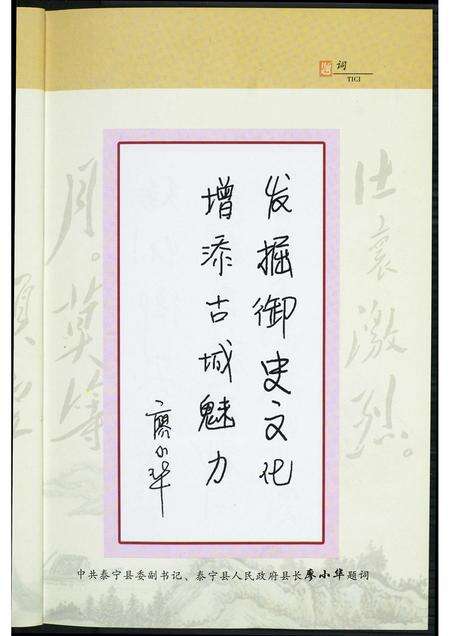 题词
TICI
发掘御史文化
增添古城魅力
廖小华
中共泰宁县委副书记、泰宁县人民政府县长廖小华题词
壮裹激烈。
月。莫等